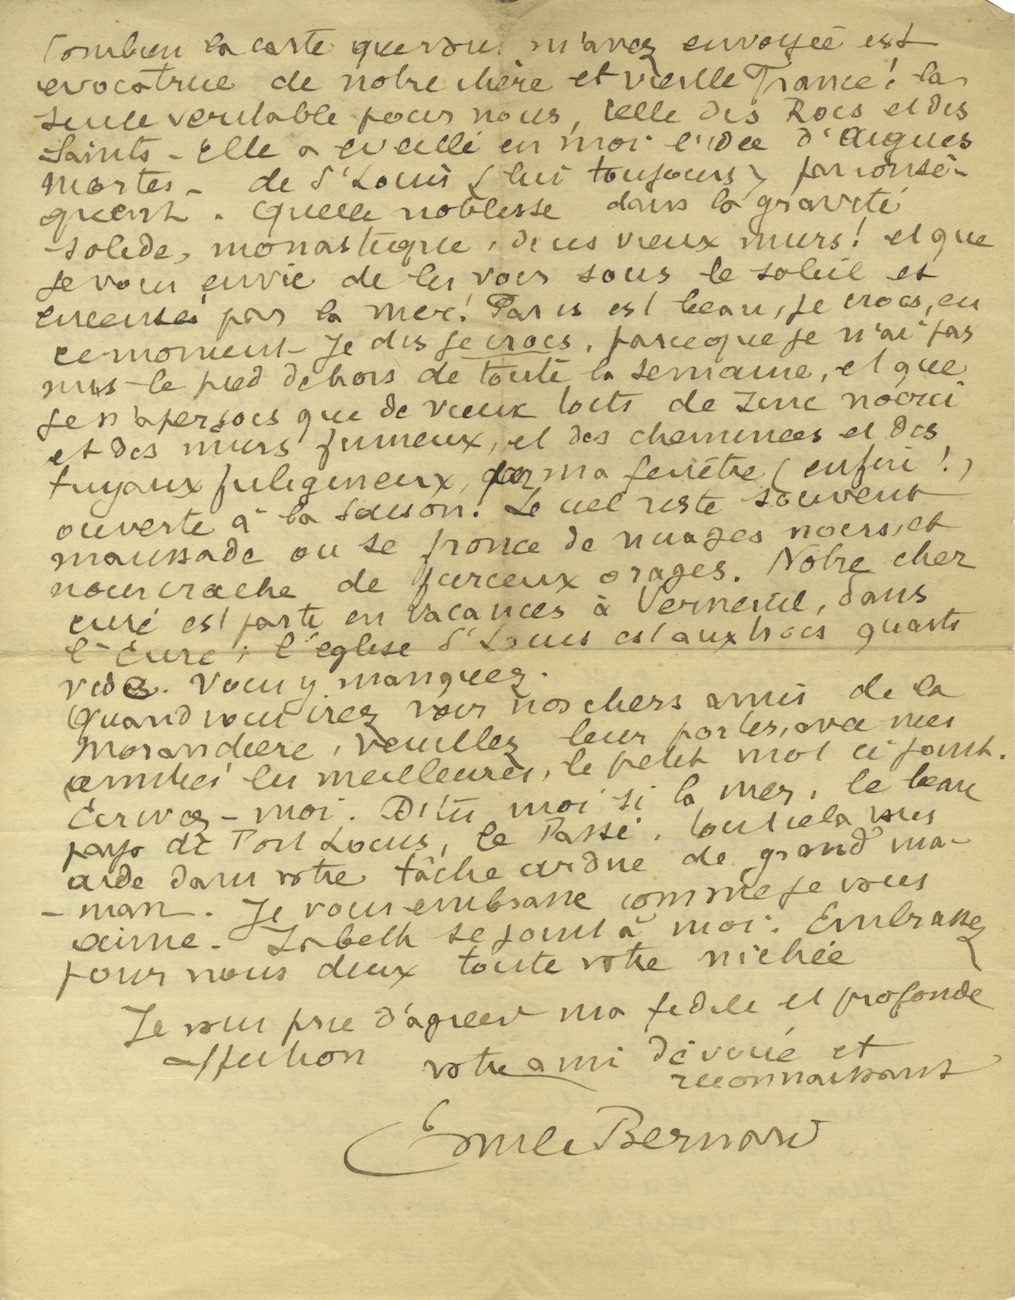 Combien la carte que vous m'avez envoyée est
evocatrice de notre chère et vieille France! la
seule veritable pour nous, celle des Rois et des
Saints - Elle a eveillé en moi l'idée d'Aigues
mortes - de St Louis (lui toujours) par consé-
quent. Quelle noblesse dans la gravité
solide, monastique, de ces vieux murs! et que
je vous envie de les voir sous le soleil et
encensés par la mer! Paris est beau, je crois, en
ce moment - Je dis je crois, parceque je n'ai pas
mis le pied dehors de toute la semaine, et que
je n'aperçois que de vieux toits de zinc noirci
et des murs fumeux, et des cheminées et des
tuyaux fuligineux, par ma fenêtre (enfin!)
ouverte à la saison! Le ciel reste souvent
maussade ou se fronce de nuages noirs, et
nous crache de furieux orages. Notre cher
curé est parti en vacances à Verneuil, dans
l'Eure; l'église St Louis est aux trois quarts
vide. Vous y manquez.
Quand vous irez voir nos chers amis de la
Morandiere, veuillez leur porter, avec mes
amitiés les meilleures, le petit mot ci joint.
Ecrivez-moi. Dites moi si la mer, le beau
pays de Port Louis, le Passé, tout cela vous
aide dans votre tâche ardue de grand'ma-
-man. Je vous embrasse comme je vous
aime. Isabeth se joint à moi. Embrassez
pour nous deux toute votre nichée
Je vous prie d'agréer ma fidele et profonde
affection votre ami dévoué et
reconnaissant
Emile Bernard